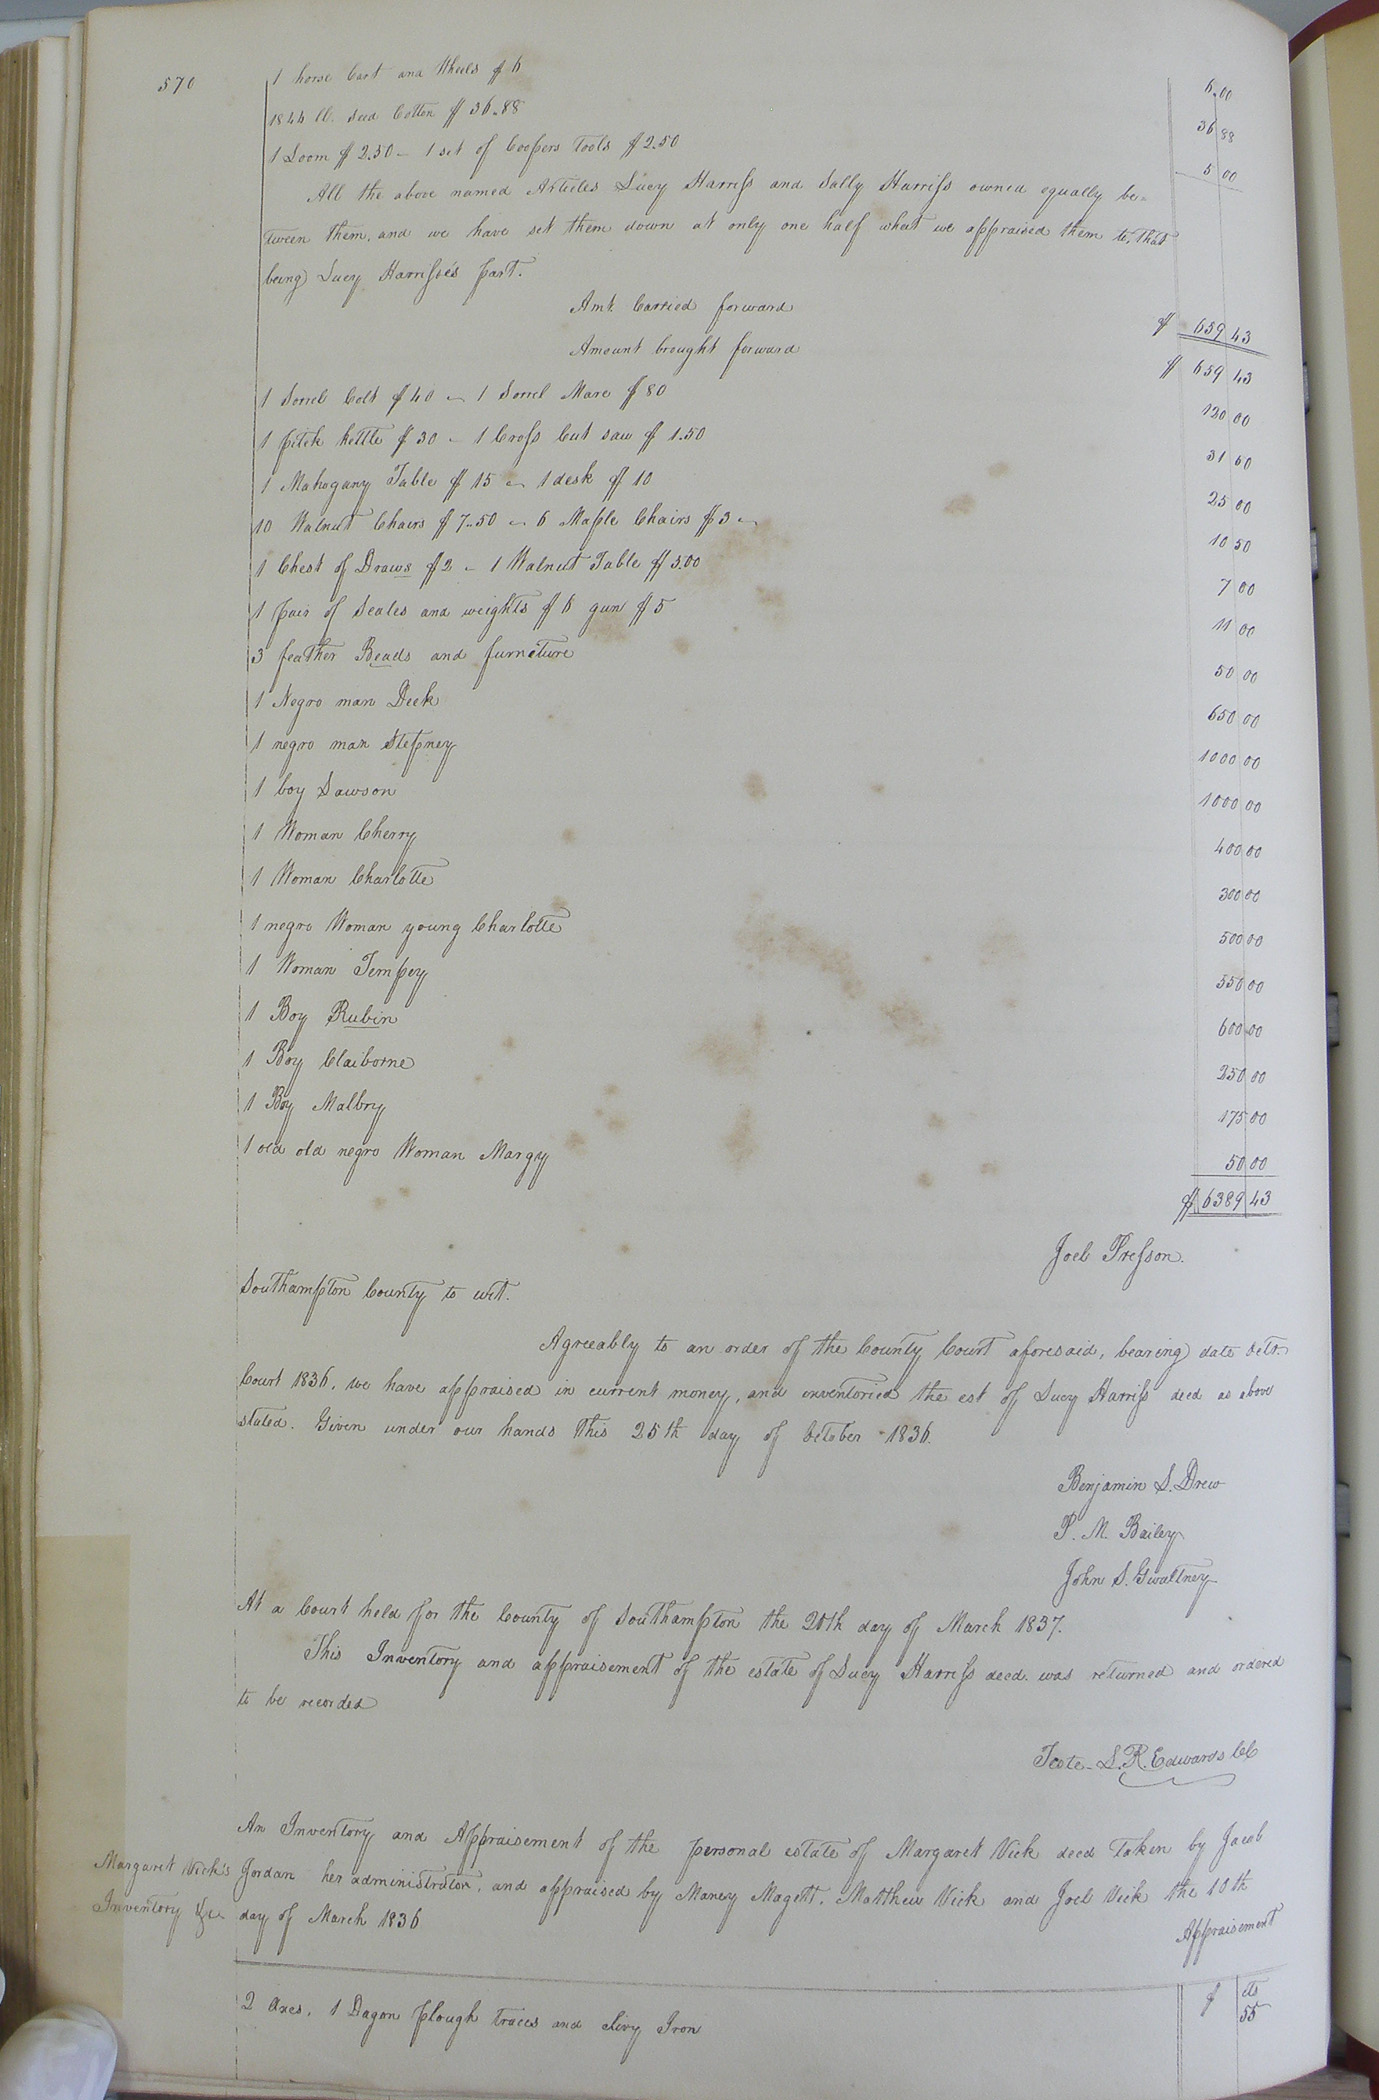 570
1 horse Cart and Wheels $6 6.00
1844 lb. Seed Cotton $36.88 36 88
1 Loom $2.50 - 1 set of Coopers Tools $2.50 5 00
All the above named Articles Lucy Harriss and Sally Harriss owned equally be-
tween them, and we have set them down at only one half what we appraised them to, that
being Lucy Harriss'es part.
Amt. Carried forward $ 659 43
Amount brought forward $ 659 43
1 Sorrel Colt $40 - 1 Sorrel Mare $80 120 00
1 pitch kettle $30 - 1 Cross Cut saw $1.50 31 50
1 Mahogany Table $15 - 1 desk $10 25 00
10 Walnut Chairs $7.50 - 6 Maple Chairs $3 - 10 50
1 Chest of Draws $2 - 1 Walnut Table $5.00 7 00
1 pair of Scales and weights $6 gun $5 11 00
3 feather Beads and furneture 50 00
1 Negro man Deek 650 00
1 negro man Stepney 1000 00
1 boy Dawson 1000 00
1 Woman Cherry 400 00
1 Woman Charlotte 300 00
1 negro Woman young Charlotte 500 00
1 Woman Tempey 550 00
1 Boy Rubin 600 00
1 Boy Claiborne 250 00
1 Boy Malbry 175 00
1 old old negro Woman Margy 50 00
$ 6389 43
Joel Presson.
Southampton County to wit.
Agreeably to an order of the County Court aforesaid, bearing date Octr.
Court 1836, we have appraised in current money, and inventoried the est of Lucy Harriss decd as above
stated. Given under our hands this 25th day of October 1836.
Benjamin S. Drew
P. M. Bailey
John S. Gwaltney
At a Court held for the County of Southampton the 20th day of March 1837.
This Inventory and appraisement of the estate of Lucy Harriss decd. was returned and ordered
to be recorded
Teste - L. R. Edwards CC
An Inventory and Appraisement of the personal estate of Margaret Vick decd Taken by Jacob
Margaret Vick's Jordan her administrator, and appraised by Maney Magett, Matthew Vick and Joel Vick the 10th
Inventory &c day of March 1836
Appraisement
$ cts
2 Axes, 1 Dagon plough traces and clivy Iron 55